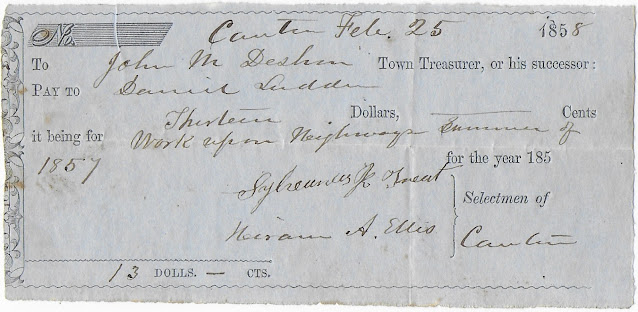 No. Canton Feb. 25 1858
To John M Deshon Town Treasurer, or his successor:
PAY TO Daniel Ludden
Thirteen Dollars, —— Cents
it being for Work upon Highways Summer of
1857 for the year 185
H Treat
Hiram A. Ellis
Selectmen of
Canton
13 DOLLS. — CTS.